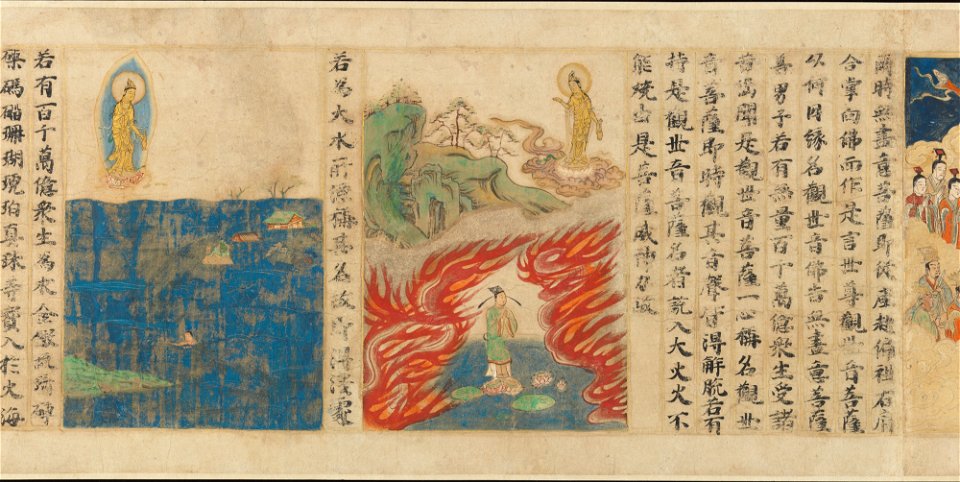 尒時無盡意菩薩即從座起偏袒右肩
合掌向佛而作是言世尊觀世音菩薩
以何因緣名觀世音佛告無盡意菩薩
善男子若有無量百千萬億衆生受諸
苦惱聞是觀世音菩薩一心稱名觀世
音菩薩即時觀其音聲皆得解脫若有
持是觀世音菩薩名者設入大火火不
能燒由是菩薩威神力故
若為大水所漂稱其名號即得淺處
若有百千萬億衆生為求金銀琉璃硨
磲碼碯珊瑚琥珀真珠等寶入於大海